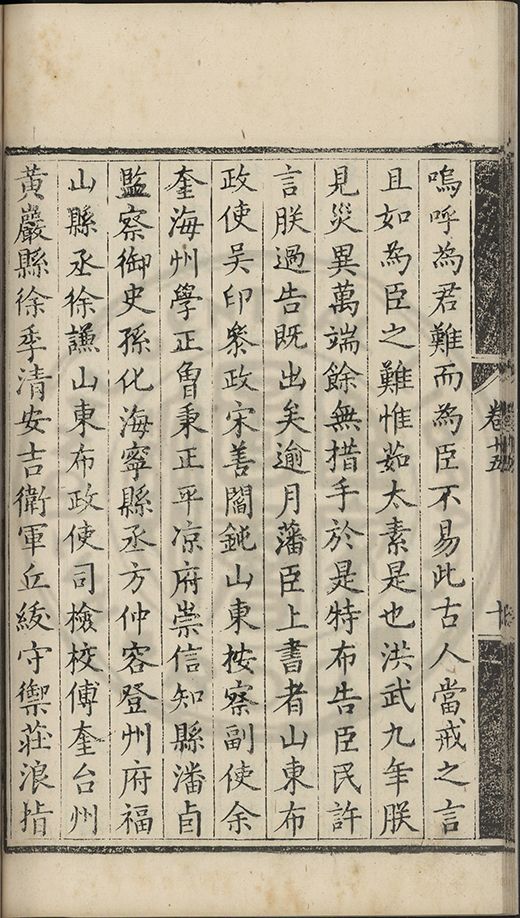 卷十五
十
嗚呼為君難而為臣不易此古人當戒之言
且如為臣之難惟茹太素是也洪武九年朕
見災異萬端餘無措手於是特布告臣民許
言朕過告既出矣逾月藩臣上書者山東布
政使吳印叅政宋善閻鈍山東按察副使余
奎海州學正曾秉正平凉府崇信知縣潘卣
監察御史孫化海寧縣丞方仲容登州府福
山縣丞徐謙山東布政使司檢校傅奎台州
黃巖縣徐季清安吉衛軍丘緩守禦莊浪指